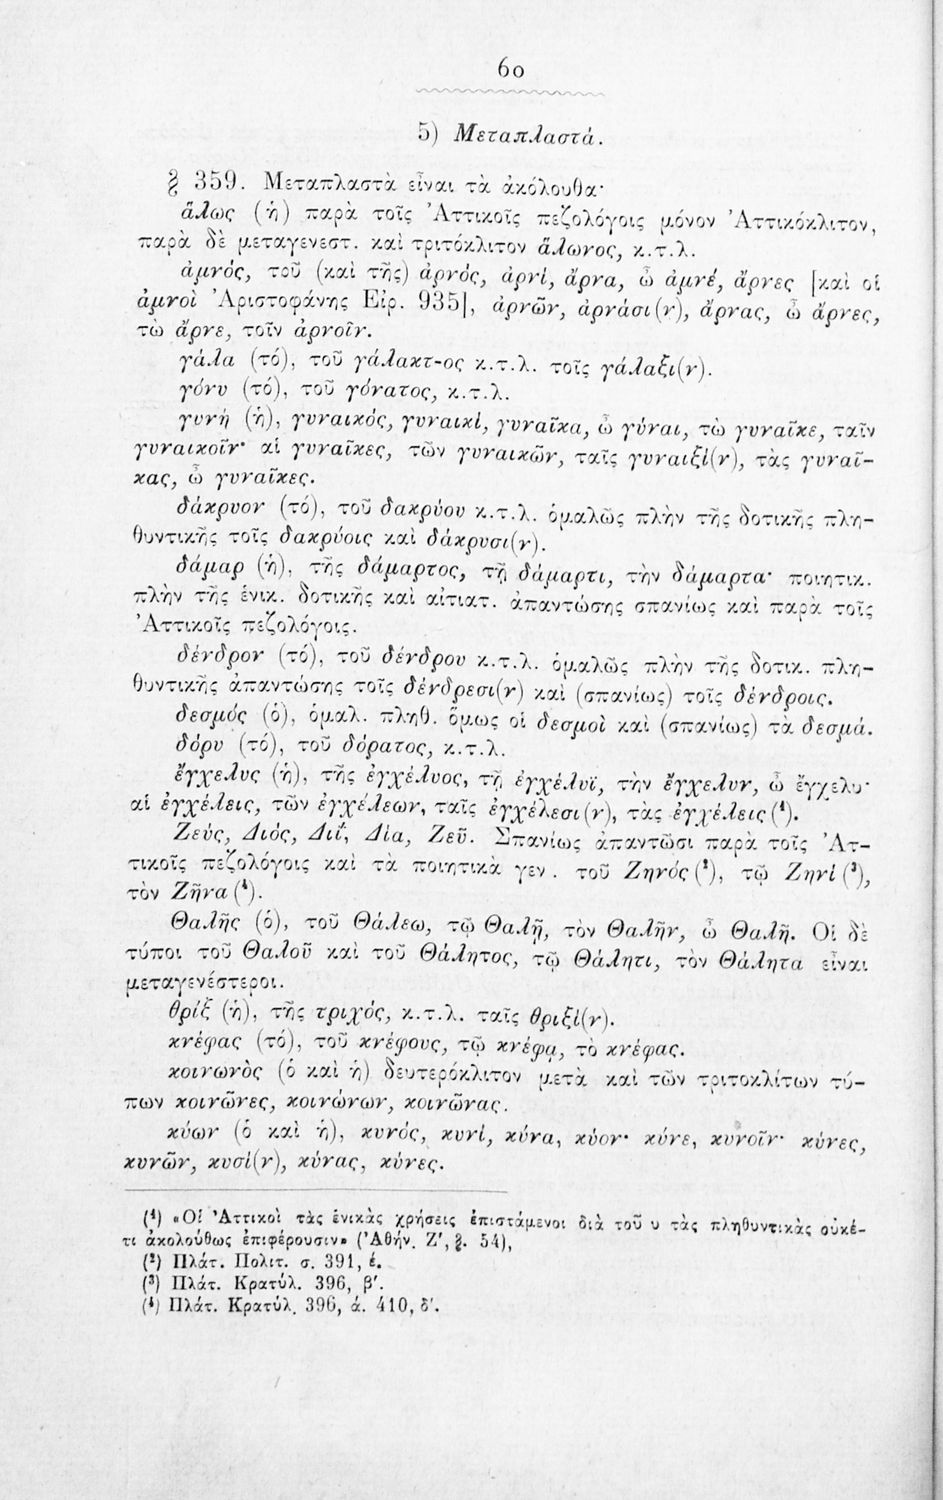 60
5) Μεταπλαστά.
§ 359. Μεταπλαστὰ εἶναι τὰ ἀκόλουθα·
ἅλως (ἡ) παρὰ τοῖς Ἀττικοῖς πεζολόγοις μόνον Ἀττικόκλιτον,
παρὰ δὲ μεταγενεστ. καὶ τριτόκλιτον ἅλωνος, κ.τ.λ.
ἀμνός, τοῦ (καὶ τῆς) ἀρνός, ἀρνί, ἄρνα, ὦ ἀμνέ, ἄρνες [καὶ οἱ
ἀμνοὶ Ἀριστοφάνης Εἰρ. 935], ἀρνῶν, ἀρνάσι(ν), ἄρνας, ὦ ἄρνες,
τὼ ἄρνε, τοῖν ἀρνοῖν.
γάλα (τό), τοῦ γάλακτ-ος κ.τ.λ. τοῖς γάλαξι(ν).
γόνυ (τό), τοῦ γόνατος, κ.τ.λ.
γυνή (ἡ), γυναικός, γυναικί, γυναῖκα, ὦ γύναι, τὼ γυναῖκε, ταῖν
γυναικοῖν· αἱ γυναῖκες, τῶν γυναικῶν, ταῖς γυναιξί(ν), τὰς γυναῖ-
κας, ὦ γυναῖκες.
δάκρυον (τό), τοῦ δακρύου κ.τ.λ. ὁμαλῶς πλὴν τῆς δοτικῆς πλη-
θυντικῆς τοῖς δακρύοις καὶ δάκρυσι(ν).
δάμαρ (ἡ), τῆς δάμαρτος, τῇ δάμαρτι, τὴν δάμαρτα· ποιητικ.
πλὴν τῆς ἑνικ. δοτικῆς καὶ αἰτιατ. ἀπαντώσης σπανίως καὶ παρὰ τοῖς
Ἀττικοῖς πεζολόγοις.
δένδρον (τό), τοῦ δένδρου κ.τ.λ. ὁμαλῶς πλὴν τῆς δοτικ. πλη-
θυντικῆς ἀπαντώσης τοῖς δένδρεσι(ν) καὶ (σπανίως) τοῖς δένδροις.
δεσμός (ὁ), ὁμαλ. πληθ. ὅμως οἱ δεσμοὶ καὶ (σπανίως) τὰ δεσμά.
δόρυ (τό), τοῦ δόρατος, κ.τ.λ.
ἔγχελυς (ἡ), τῆς ἐγχέλυος, τῇ ἐγχέλυϊ, τὴν ἔγχελυν, ὦ ἔγχελυ·
αἱ ἐγχέλεις, τῶν ἐγχέλεων, ταῖς ἐγχέλεσι(ν), τὰς ἐγχέλεις(¹).
Ζεύς, Διός, Διΐ, Δία, Ζεῦ. Σπανίως ἀπαντῶσι παρὰ τοῖς Ἀτ-
τικοῖς πεζολόγοις καὶ τὰ ποιητικὰ γεν. τοῦ Ζηνός(²), τῷ Ζηνί(³),
τὸν Ζῆνα(⁴).
Θαλῆς (ὁ), τοῦ Θάλεω, τῷ Θαλῇ, τὸν Θαλῆν, ὦ Θαλῆ. Οἱ δὲ
τύποι τοῦ Θαλοῦ καὶ τοῦ Θάλητος, τῷ Θάλητι, τὸν Θάλητα εἶναι
μεταγενέστεροι.
θρίξ (ἡ), τῆς τριχός, κ.τ.λ. ταῖς θριξί(ν).
κνέφας (τό), τοῦ κνέφους, τῷ κνέφᾳ, τὸ κνέφας.
κοινωνὸς (ὁ καὶ ἡ) δευτερόκλιτον μετὰ καὶ τῶν τριτοκλίτων τύ-
πων κοινῶνες, κοινώνων, κοινῶνας.
κύων (ὁ καὶ ἡ), κυνός, κυνί, κύνα, κύον· κύνε, κυνοῖν· κύνες,
κυνῶν, κυσί(ν), κύνας, κύνες.
(¹) «Οἱ Ἀττικοὶ τὰς ἑνικὰς χρήσεις ἐπιστάμενοι διὰ τοῦ υ τὰς πληθυντικὰς οὐκέ-
τι ἀκολούθως ἐπιφέρουσιν» (Ἀθήν. Ζ', §. 54),
(²) Πλάτ. Πολιτ. σ. 391, έ.
(³) Πλάτ. Κρατύλ. 396, β'.
(⁴) Πλάτ. Κρατύλ. 396, ά. 410, δ'.